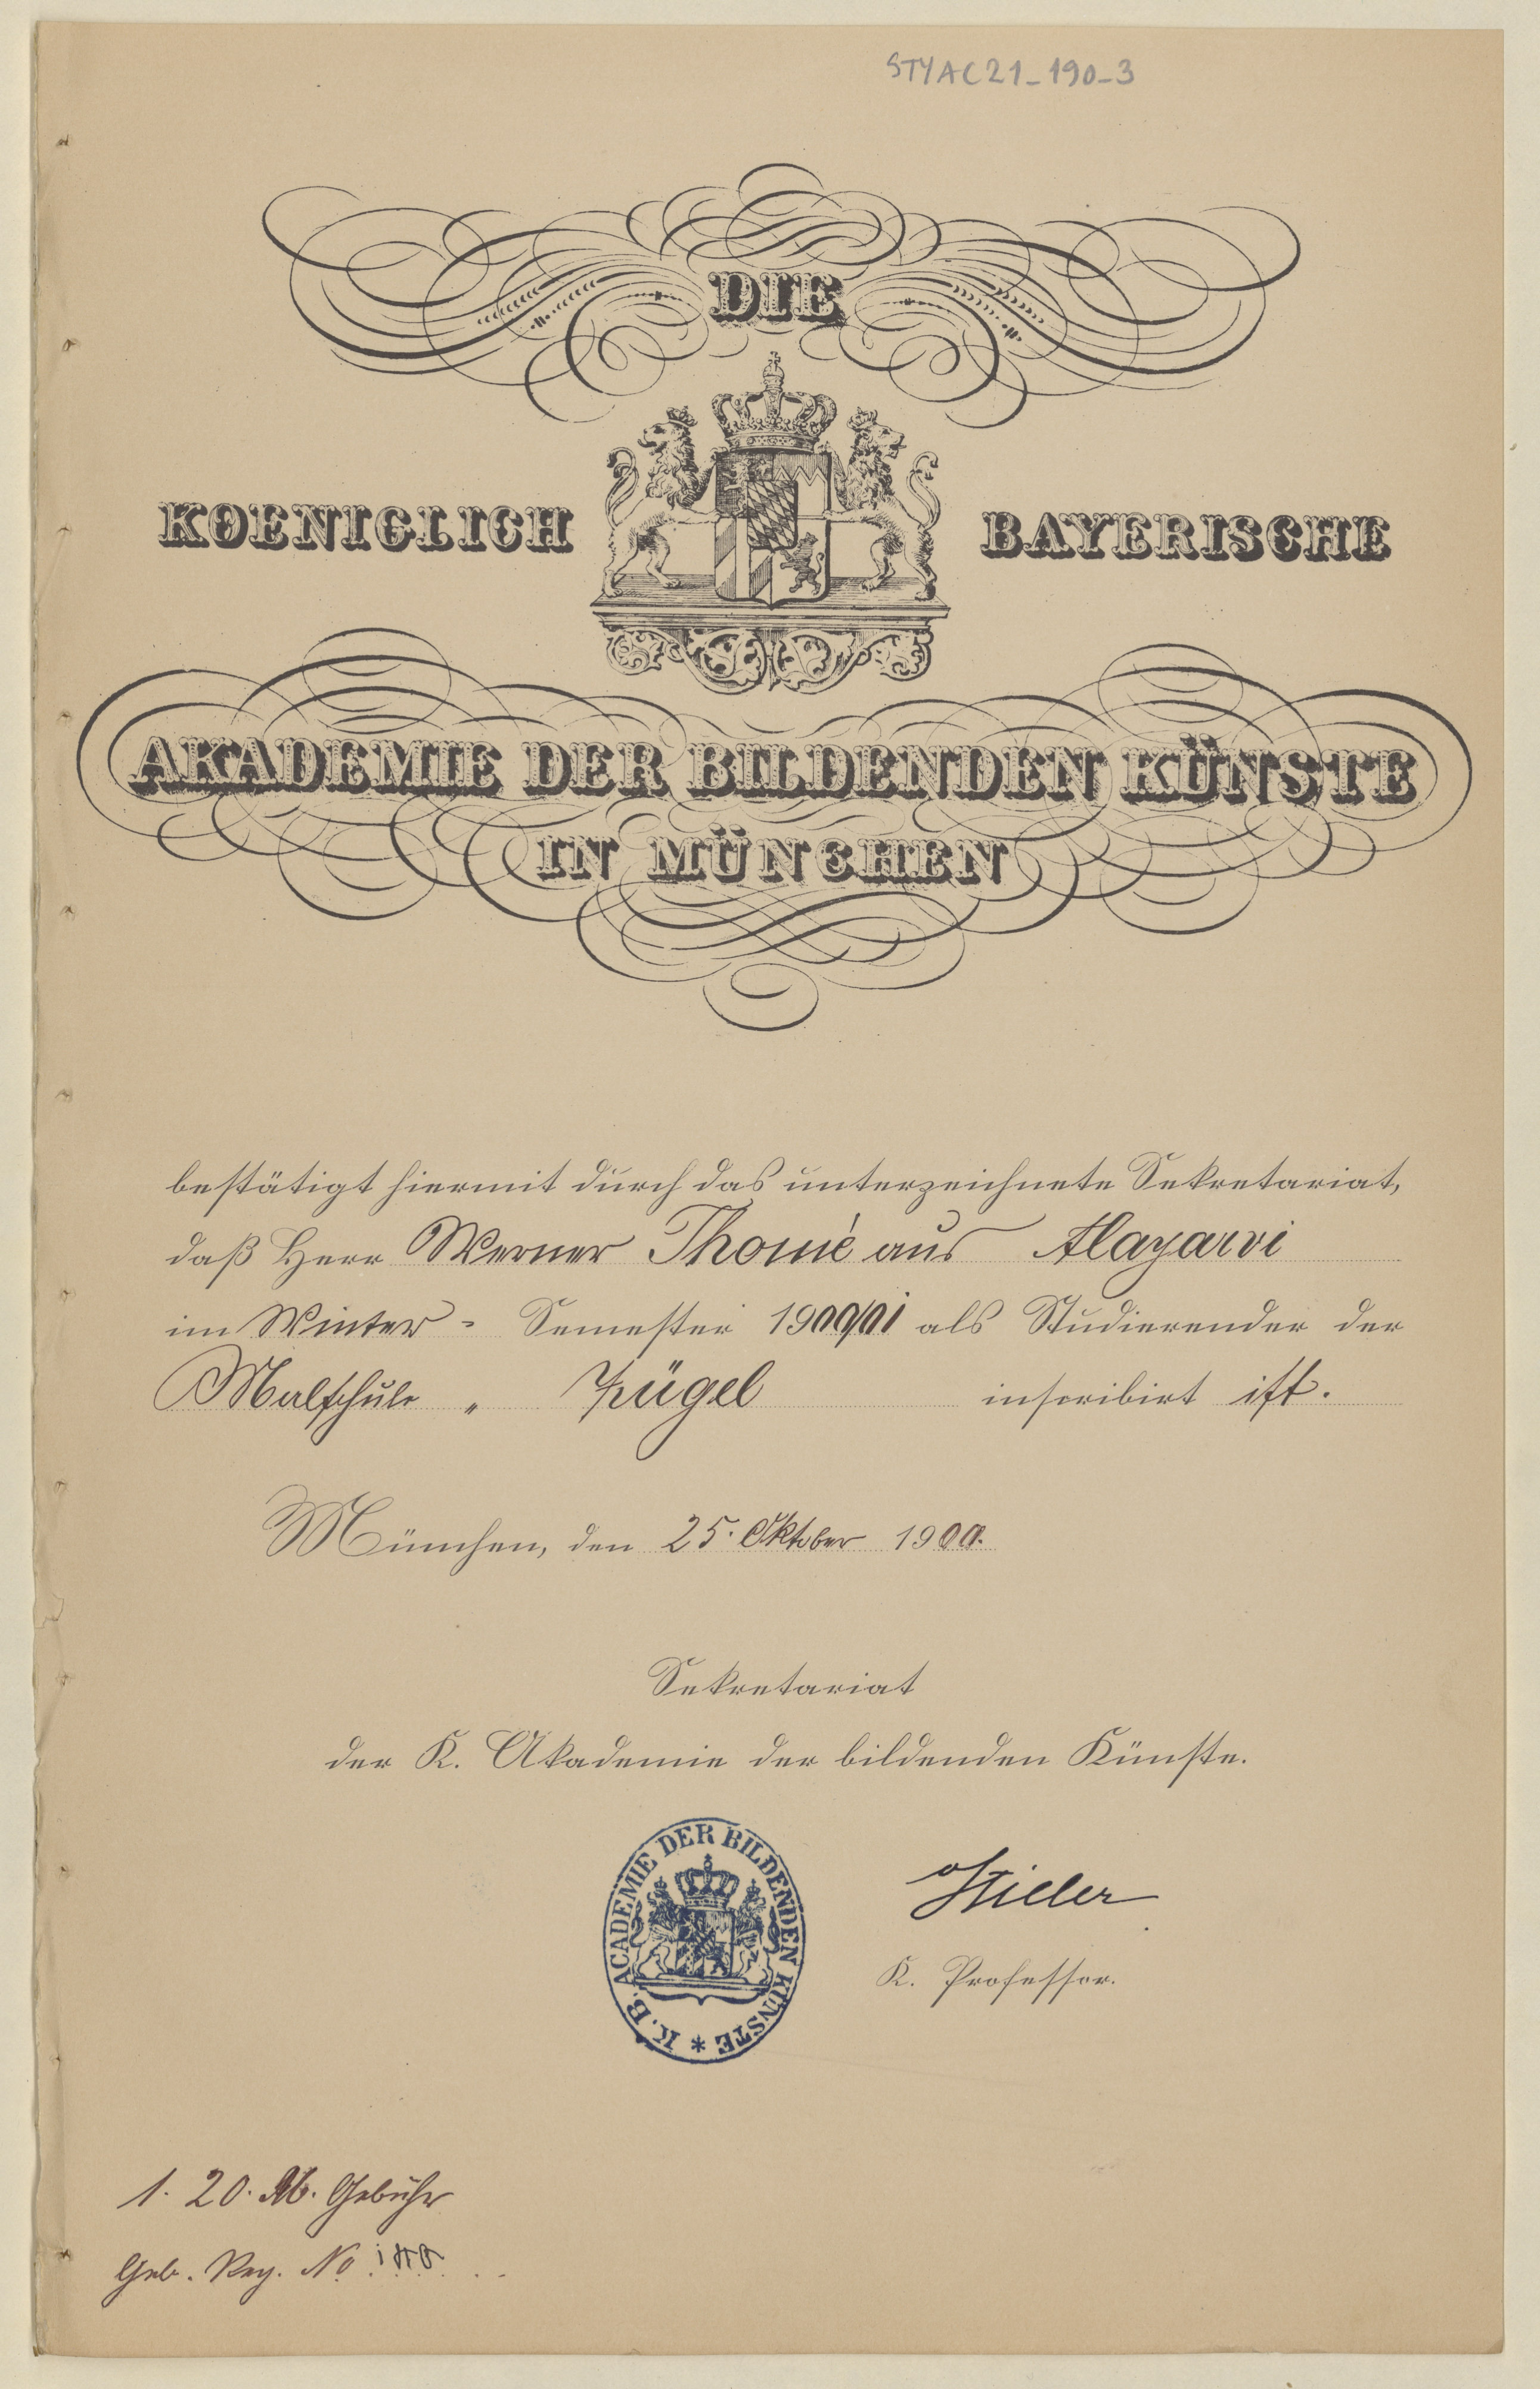 STYAC21_190_3
DIE
KOENIGLICH BAYERISCHE
AKADEMIE DER BILDENDEN KÜNSTE
IN MÜNCHEN
bestätigt hiermit durch das unterzeichnete Sekretariat,
daß Herr Werner Thomé aus Alayarvi
im Winter - Semester 1900/01 als Studierender der
Malschule „ Zügel inscribirt ist.
München, den 25. Oktober 1900.
Sekretariat
der K. Akademie der bildenden Künste.
K. B. ACADEMIE DER BILDENDEN KÜNSTE *
Stieler
K. Professor.
1. 20. M. Gebühr
Geb. Reg. No